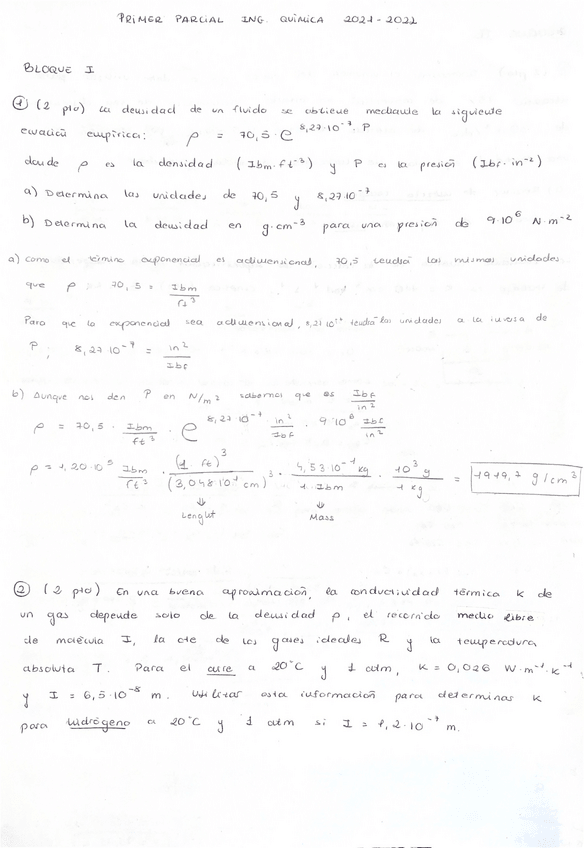 PRIMER PARCIAL ING. QUÍMICA 2021-2022
BLOQUE I
① (2 pto) La densidad de un fluido se obtiene mediante la siguiente
ecuación empírica: ρ = 70,5 · e^8,27·10⁻⁷·P
donde ρ es la densidad (Ibm·ft⁻³) y P es la presión (Ibf·in⁻²)
a) Determina las unidades de 70,5 y 8,27·10⁻⁷
b) Determina la densidad en g·cm⁻³ para una presión de 9·10⁶ N·m⁻²
a) Como el término exponencial es adimensional, 70,5 tendrá las mismas unidades
que ρ 70,5 = Ibm/ft³
Para que lo exponencial sea adimensional, 8,27·10⁻⁷ tendrá las unidades a la inversa de
P; 8,27·10⁻⁷ = in²/Ibf
b) Aunque nos den P en N/m² sabemos que es Ibf/in²
ρ = 70,5 · Ibm/ft³ · e^8,27·10⁻⁷ in²/Ibf · 9·10⁶ Ibf/in²
ρ = 1,20·10⁵ Ibm/ft³ · (1 ft)³/(3,048·10¹ cm)³ · 4,53·10⁻¹ kg/1 Ibm · 10³ g/1 kg = 1919,7 g/cm³
⇓ Lenght ⇓ Mass
② (2 pto) En una buena aproximación, la conductividad térmica K de
un gas depende solo de la densidad ρ, el recorrido medio libre
de molécula I, la cte de los gases ideales R y la temperatura
absoluta T. Para el aire a 20°C y 1 atm, K = 0,026 W·m⁻¹·K⁻¹
y I = 6,5·10⁻⁸ m. Utilizar esta información para determinar K
para hidrógeno a 20°C y 1 atm si I = 1,2·10⁻⁷ m.